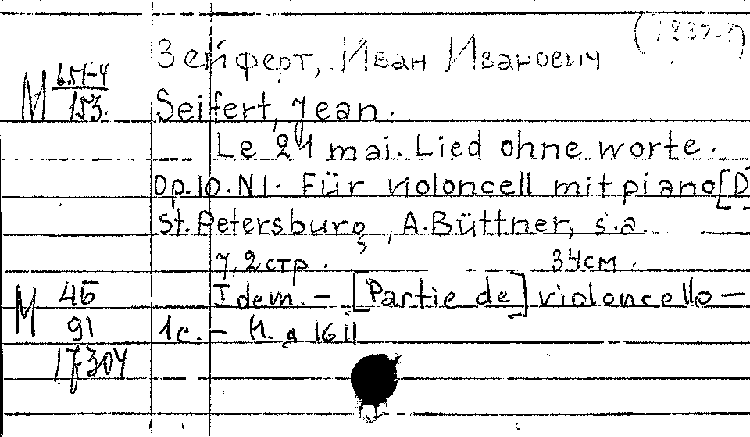 Зейферт, Иван Иванович
М 651-4
153.
Seifert, Jean.
Le 24 mai. Lied ohne worte.
Op. 10. N1. Für violoncell mit piano [D
St. Petersburg, A. Büttner, s.a.
7,2 стр. 34см.
М 46
91
17304
Idem. – [Partie de] violoncello –
1c. –